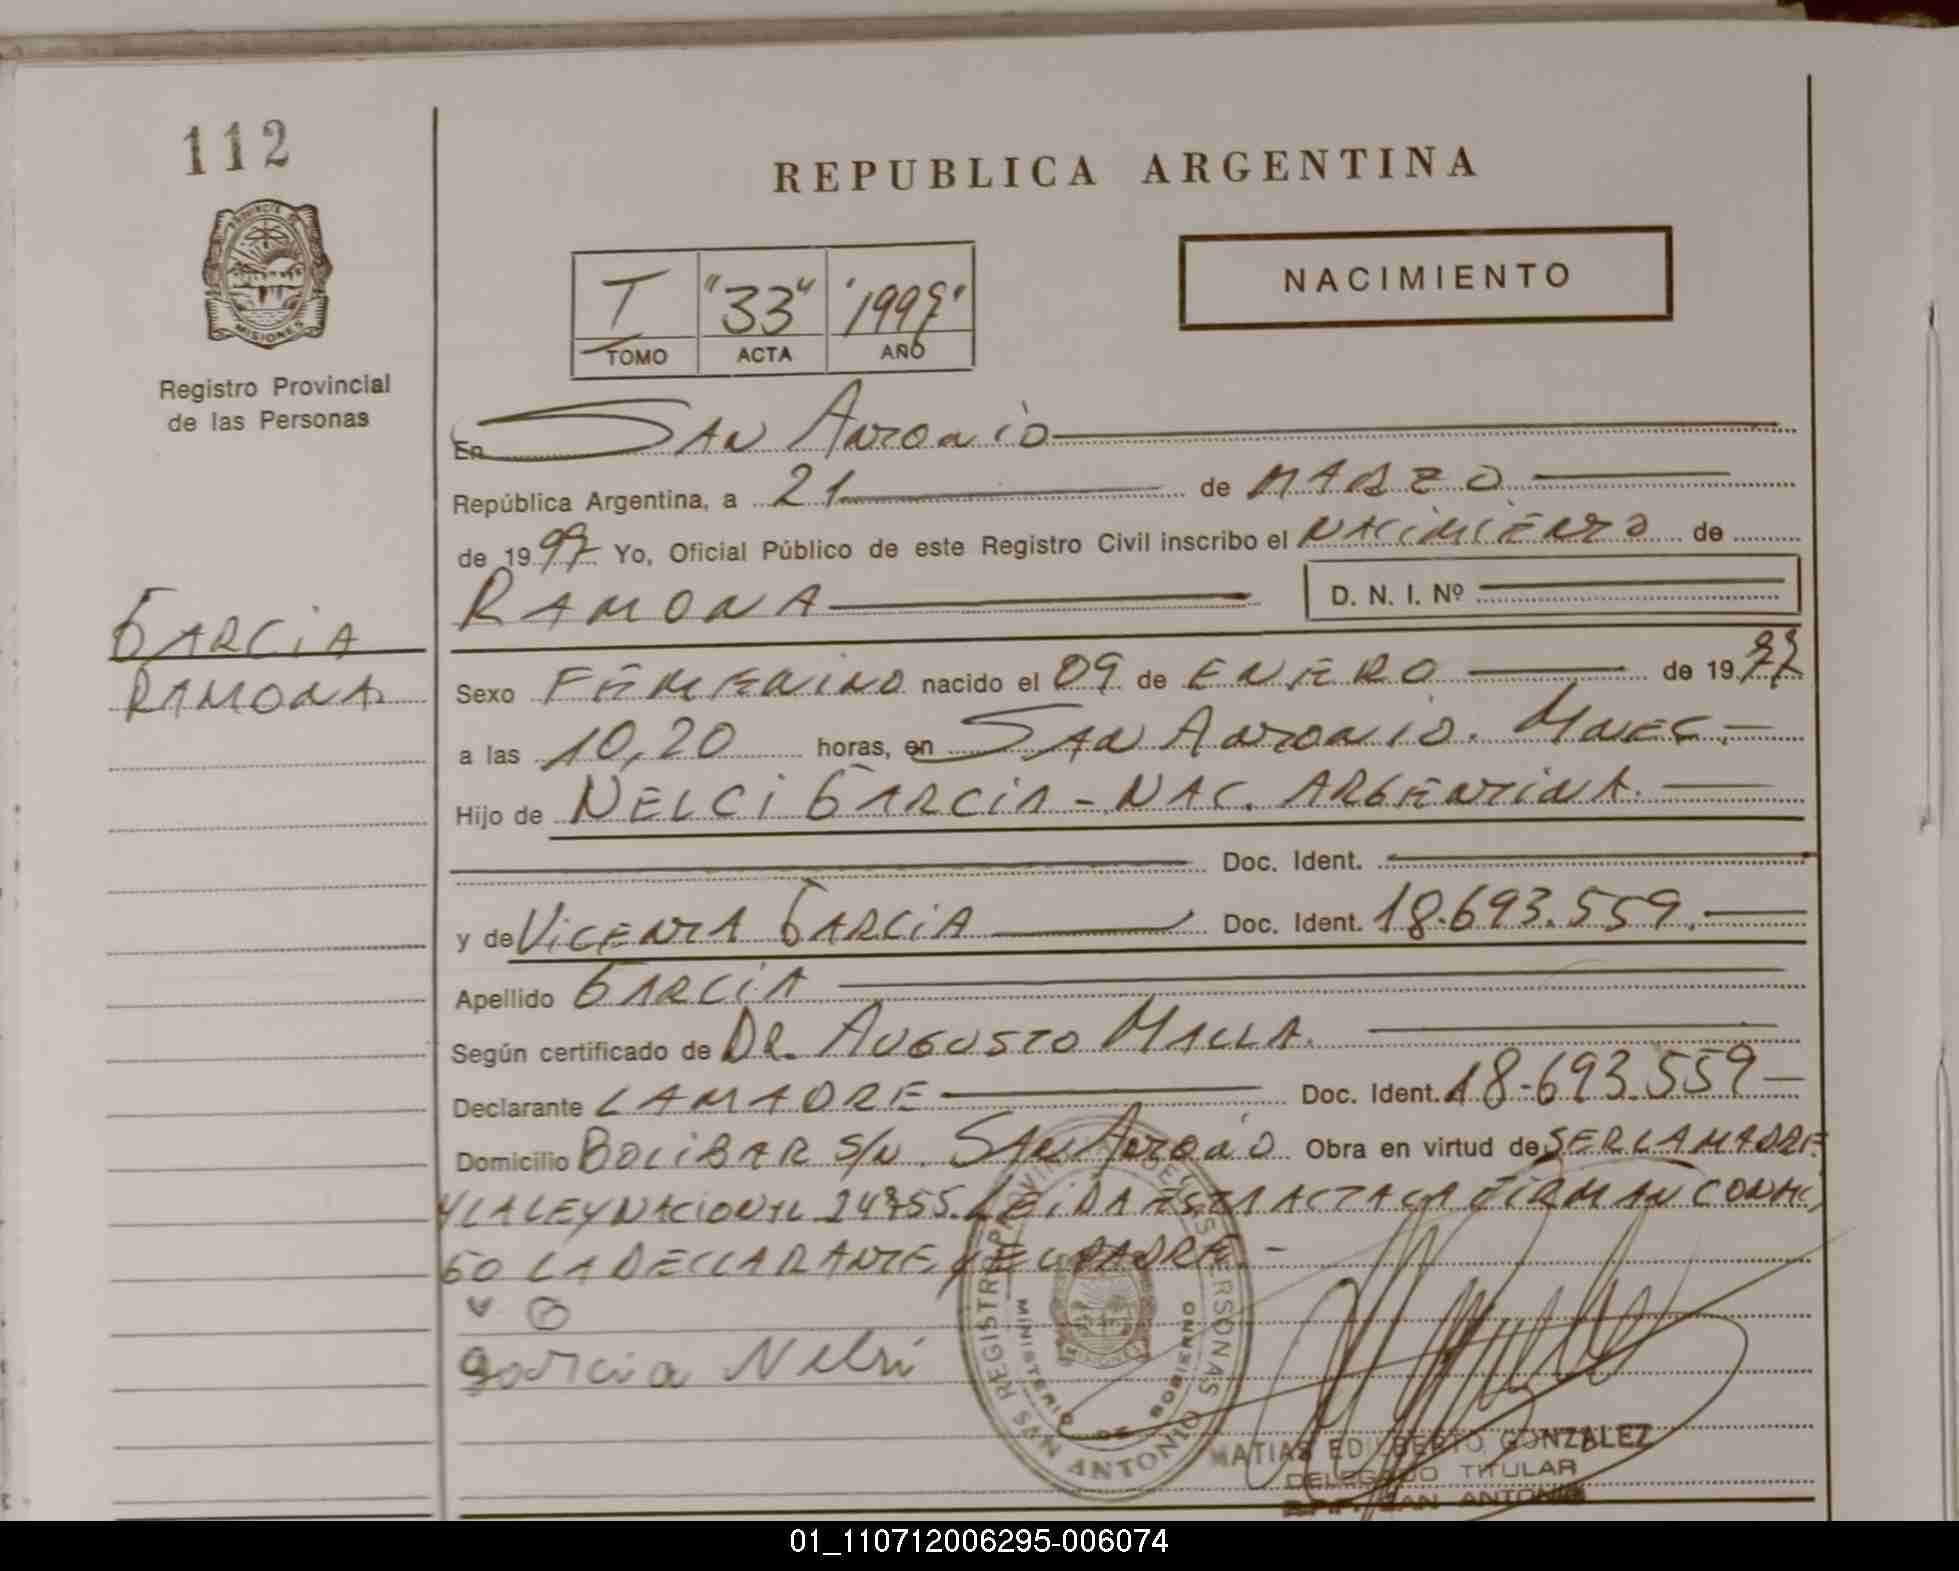 112
REPUBLICA ARGENTINA
NACIMIENTO
PROVINCIA DE
MISIONES
Registro Provincial
de las Personas
T "33" "1997"
TOMO ACTA AÑO
En San Antonio
República Argentina, a 21 de MARZO
de 1997 Yo, Oficial Público de este Registro Civil inscribo el NACIMIENTO de
RAMONA D. N. I. Nº
GARCIA
RAMONA
Sexo FEMENINO nacido el 09 de ENERO de 1997
a las 10,20 horas, en San Antonio. Mnes.
Hijo de NELCI GARCIA - NAC. ARGENTINA.
Doc. Ident.
y de VICENTA GARCIA Doc. Ident. 18.693.559.
Apellido GARCIA
Según certificado de DR. AUGUSTO MALLA.
Declarante LA MADRE Doc. Ident. 18.693.559
Domicilio BOLIBAR S/N. San Antonio Obra en virtud de SER LA MADRE
Y LA LEY NACIONAL 24755. LEIDA ESTA ACTA LA FIRMAN CONMI
GO LA DECLARANTE y EL PADRE. -
Garcia Nelsi
REGISTRO PROVINCIAL DE LAS PERSONAS
MINISTERIO DE GOBIERNO
MISIONES
SAN ANTONIO
MATIAS EDILBERTO GONZALEZ
DELEGADO TITULAR
SAN ANTONIO
01_110712006295-006074